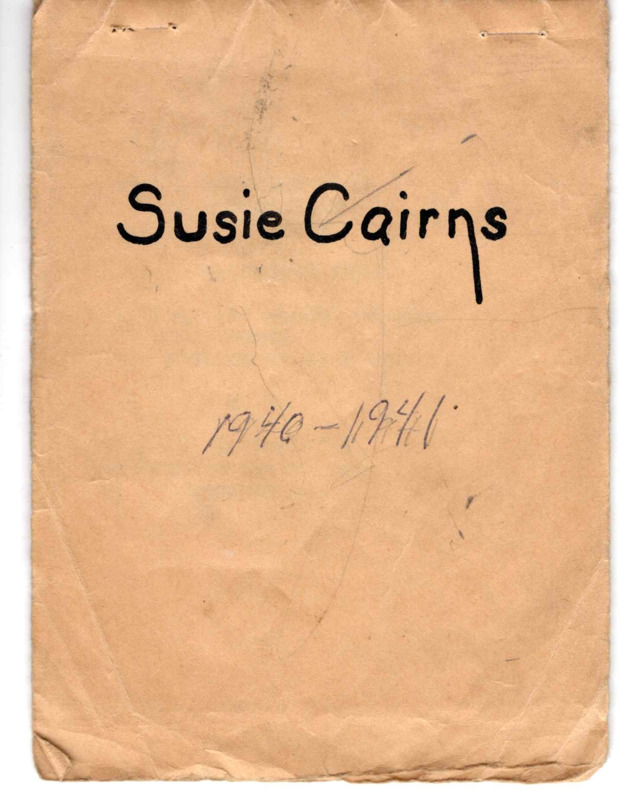 Susie Cairns
1940-1941